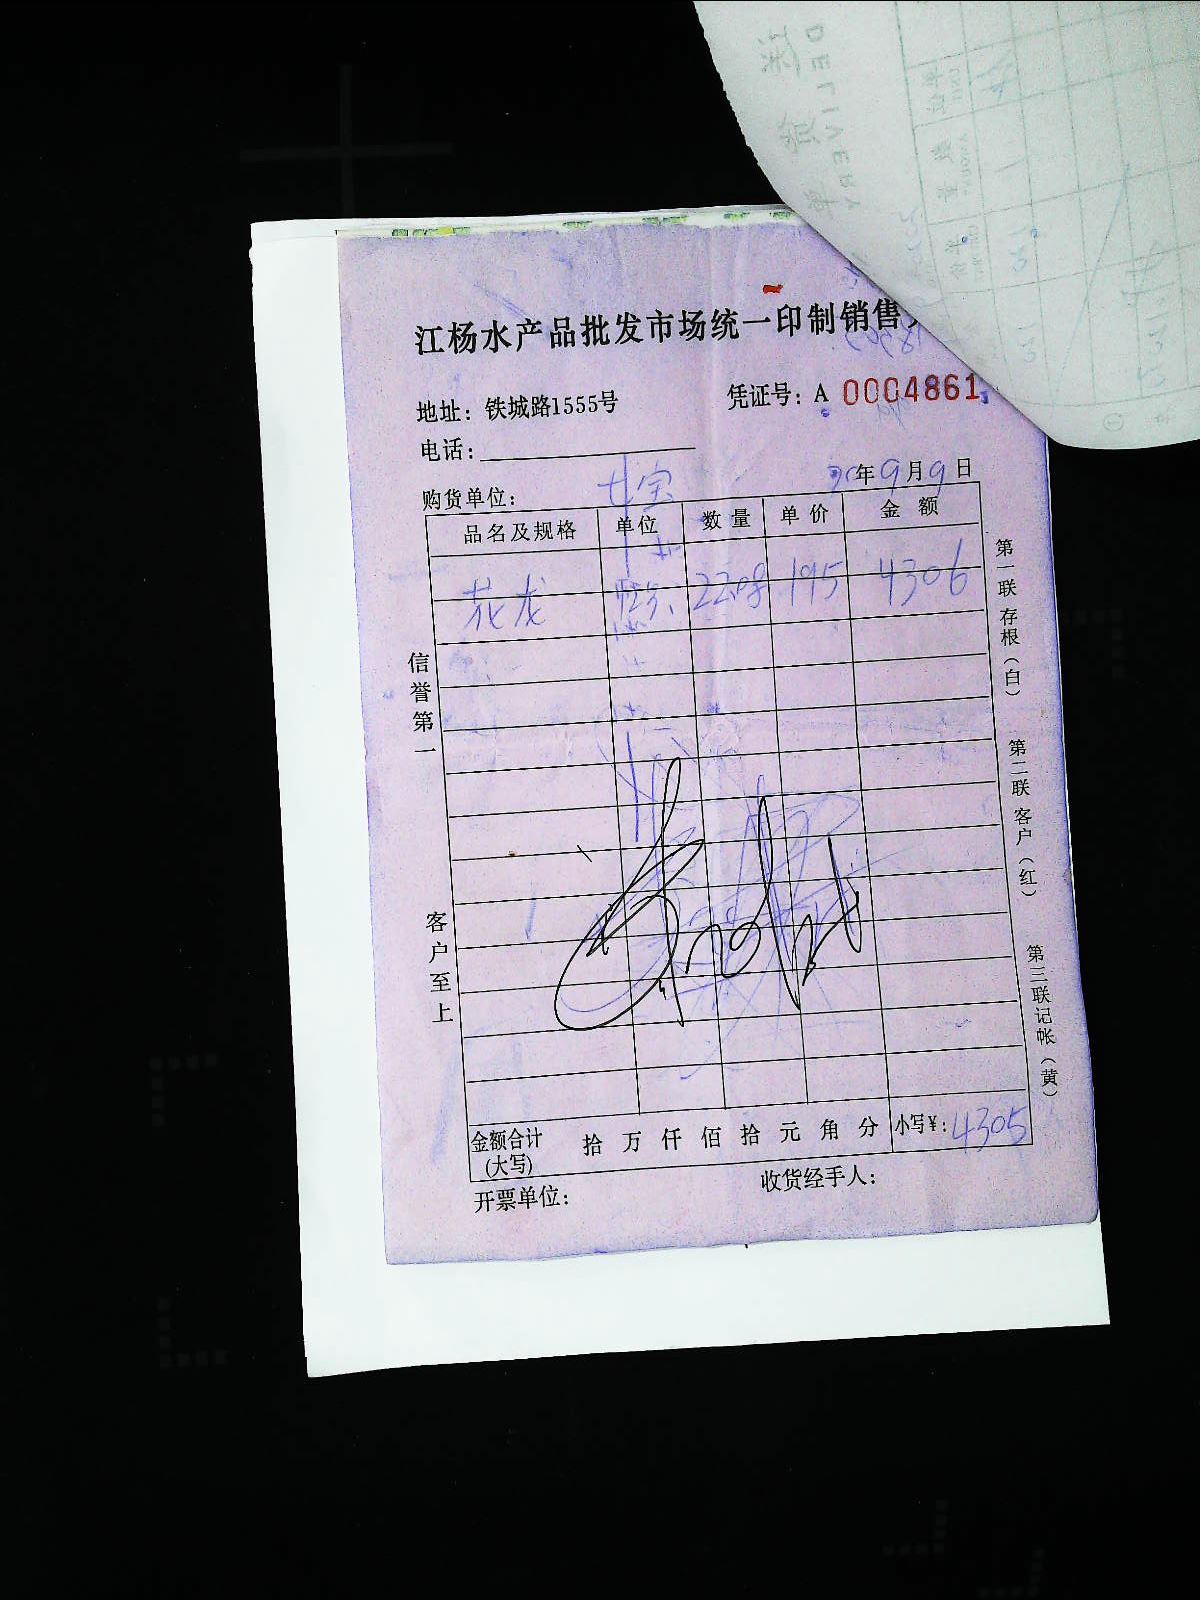 江杨水产品批发市场统一印制销售
地址：铁城路1555号
凭证号：A 0004861
电话：
购货单位： 七宝
年9月9日
品名及规格 单位 数量 单价 金额
花龙 22.08 195 4306
信誉第一
客户至上
第一联 存根（白）
第二联 客户（红）
第三联 记帐（黄）
金额合计(大写) 拾 万 仟 佰 拾 元 角 分 小写¥：4305
开票单位：
收货经手人：